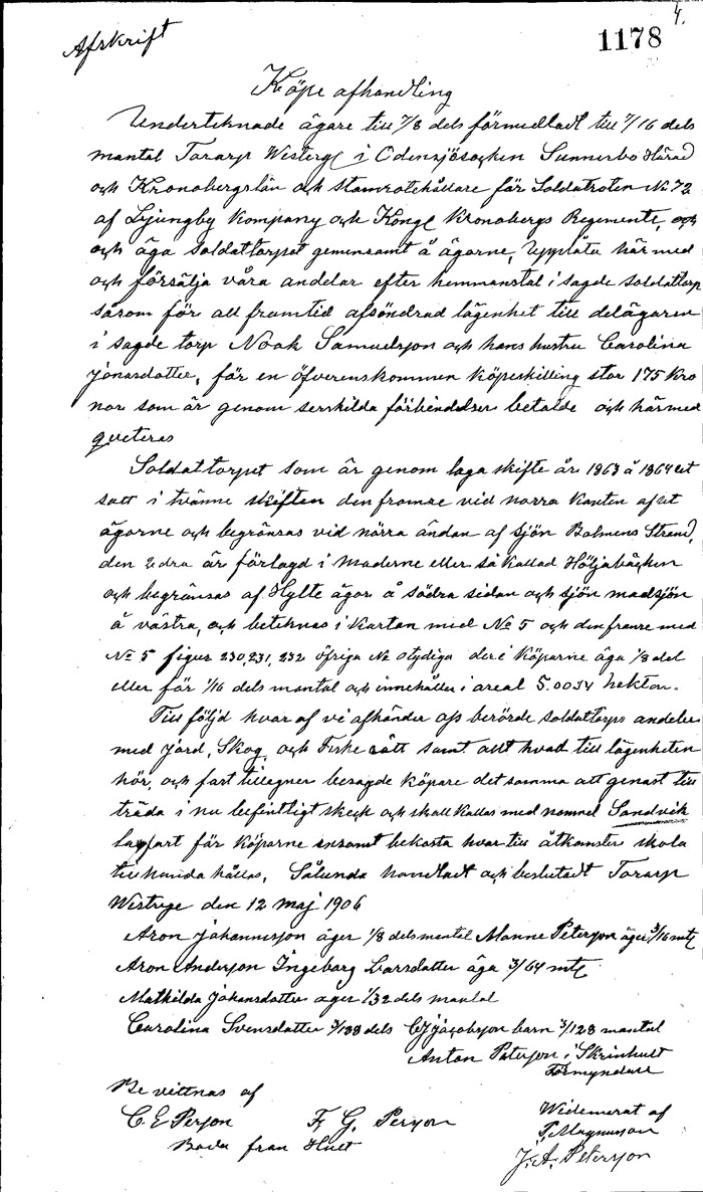 4.
Afskrift
1178
Köpe afhandling
Undertecknade ägare till 7/8 dels förmedladt till 7/16 dels
mantal Torarp Westerg i Odensjösocken Sunnerbo Härad
och Kronobergslän och Stamrotehållare för Soldatroten No 72
af Ljungby Kompany och Kongl Kronobergs Regimente, och
och äga soldattorpet gemensamt å ägorne, Upplåta härmed
och försälja våra andelar efter hemmanstal i sagde soldattorp
såsom för all framtid afsöndrad lägenhet till delägaren
i sagde torp Noak Samuelsson och hans hustru Carolina
Jonasdotter, för en öfverenskommen köpeskilling stor 175 Kro
nor som är genom serskilda förbindelser betalde och härmed
qveteras
Soldattorpet som är genom laga skifte år 1863 å 1864 ut
satt i tvänne skiften den framre vid norra kanten af ut
ägorne och begränsas vid norra ändan af sjön Bolmens Strand,
den 2dra är förlagd i Maderne eller så kallad Höljabäcken
och begränsas af Hylte ägor å södra sidan och sjön madsjön
å västra, och betecknas i Kartan med No 5 och den framre med
No 5 figur 230,231,232 öfriga No otydiga der i Köparne äga 1/8 del
eller för 1/16 dels mantal och innehåller i areal 5.0034 hektar.
Till följd hvar af vi afhänder oss berörde soldattorps andelar
med jord, Skog, och Fiske rätt samt allt hvad till lägenheten
hör, och fart tillegner besagde köpare det samma att genast till
träda i nu befintligt skeck och skall kallas med namnet Sandvik
lagfart får Köparne ensamt bekosta hvar till åtkomster skola
tillhanda hållas, Sålunda handladt och beslutadt Torarp
Westrege den 12 maj 1906
Aron Johannesson äger 1/8 dels mantal Manne Peterson äger 3/16 mtl
Aron Anderson Ingeborg Larsdotter äga 3/64 mtl
Mathilda Johansdotter äger 1/32 dels mantal
Carolina Svensdotter dels CJ Jacobsson barn 3/128 mantal
Anton Peterson i Skrinhult
Förmyndare
Bevittnas af
C E Person F, G. Person
Båda från Hult
Widimerat af
P, Magnuson
J. A. Peterson